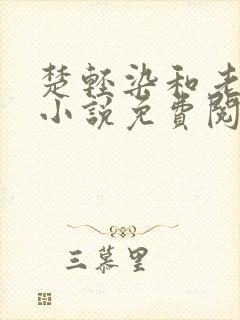 楚轻染和老
小说免费阅
三慕里